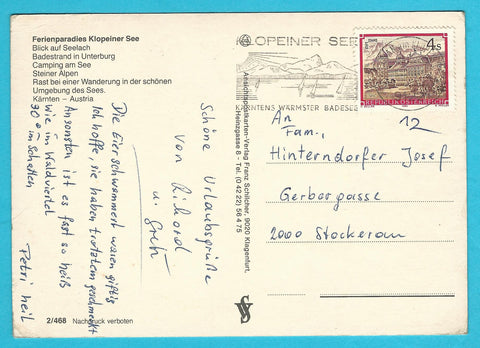 Ferienparadies Klopeiner See
Blick auf Seelach
Badestrand in Unterburg
Camping am See
Steiner Alpen
Rast bei einer Wanderung in der schönen
Umgebung des Sees.
Kärnten – Austria
Die Eierschwammerl waren giftig
Ich hoffe, sie haben trotzdem geschmeckt
Ansonsten ist es fast so heiß
wie im Waldviertel
30° im Schatten
Petri heil
Schöne Urlaubsgrüße
von Rihard
u. Greti
2/468 Nachdruck verboten
Ansichtspostkarten-Verlag Franz Schilcher, 9020 Klagenfurt,
Herzengasse 8 - Tel. (0 42 22) 56 4 75
KLOPEINER SEE
KÄRNTENS WÄRMSTER BADESEE
4 S
REPUBLIK ÖSTERREICH
An
Fam.,
12
Hinterndorfer Josef
Gerbergasse
2000 Stockerau